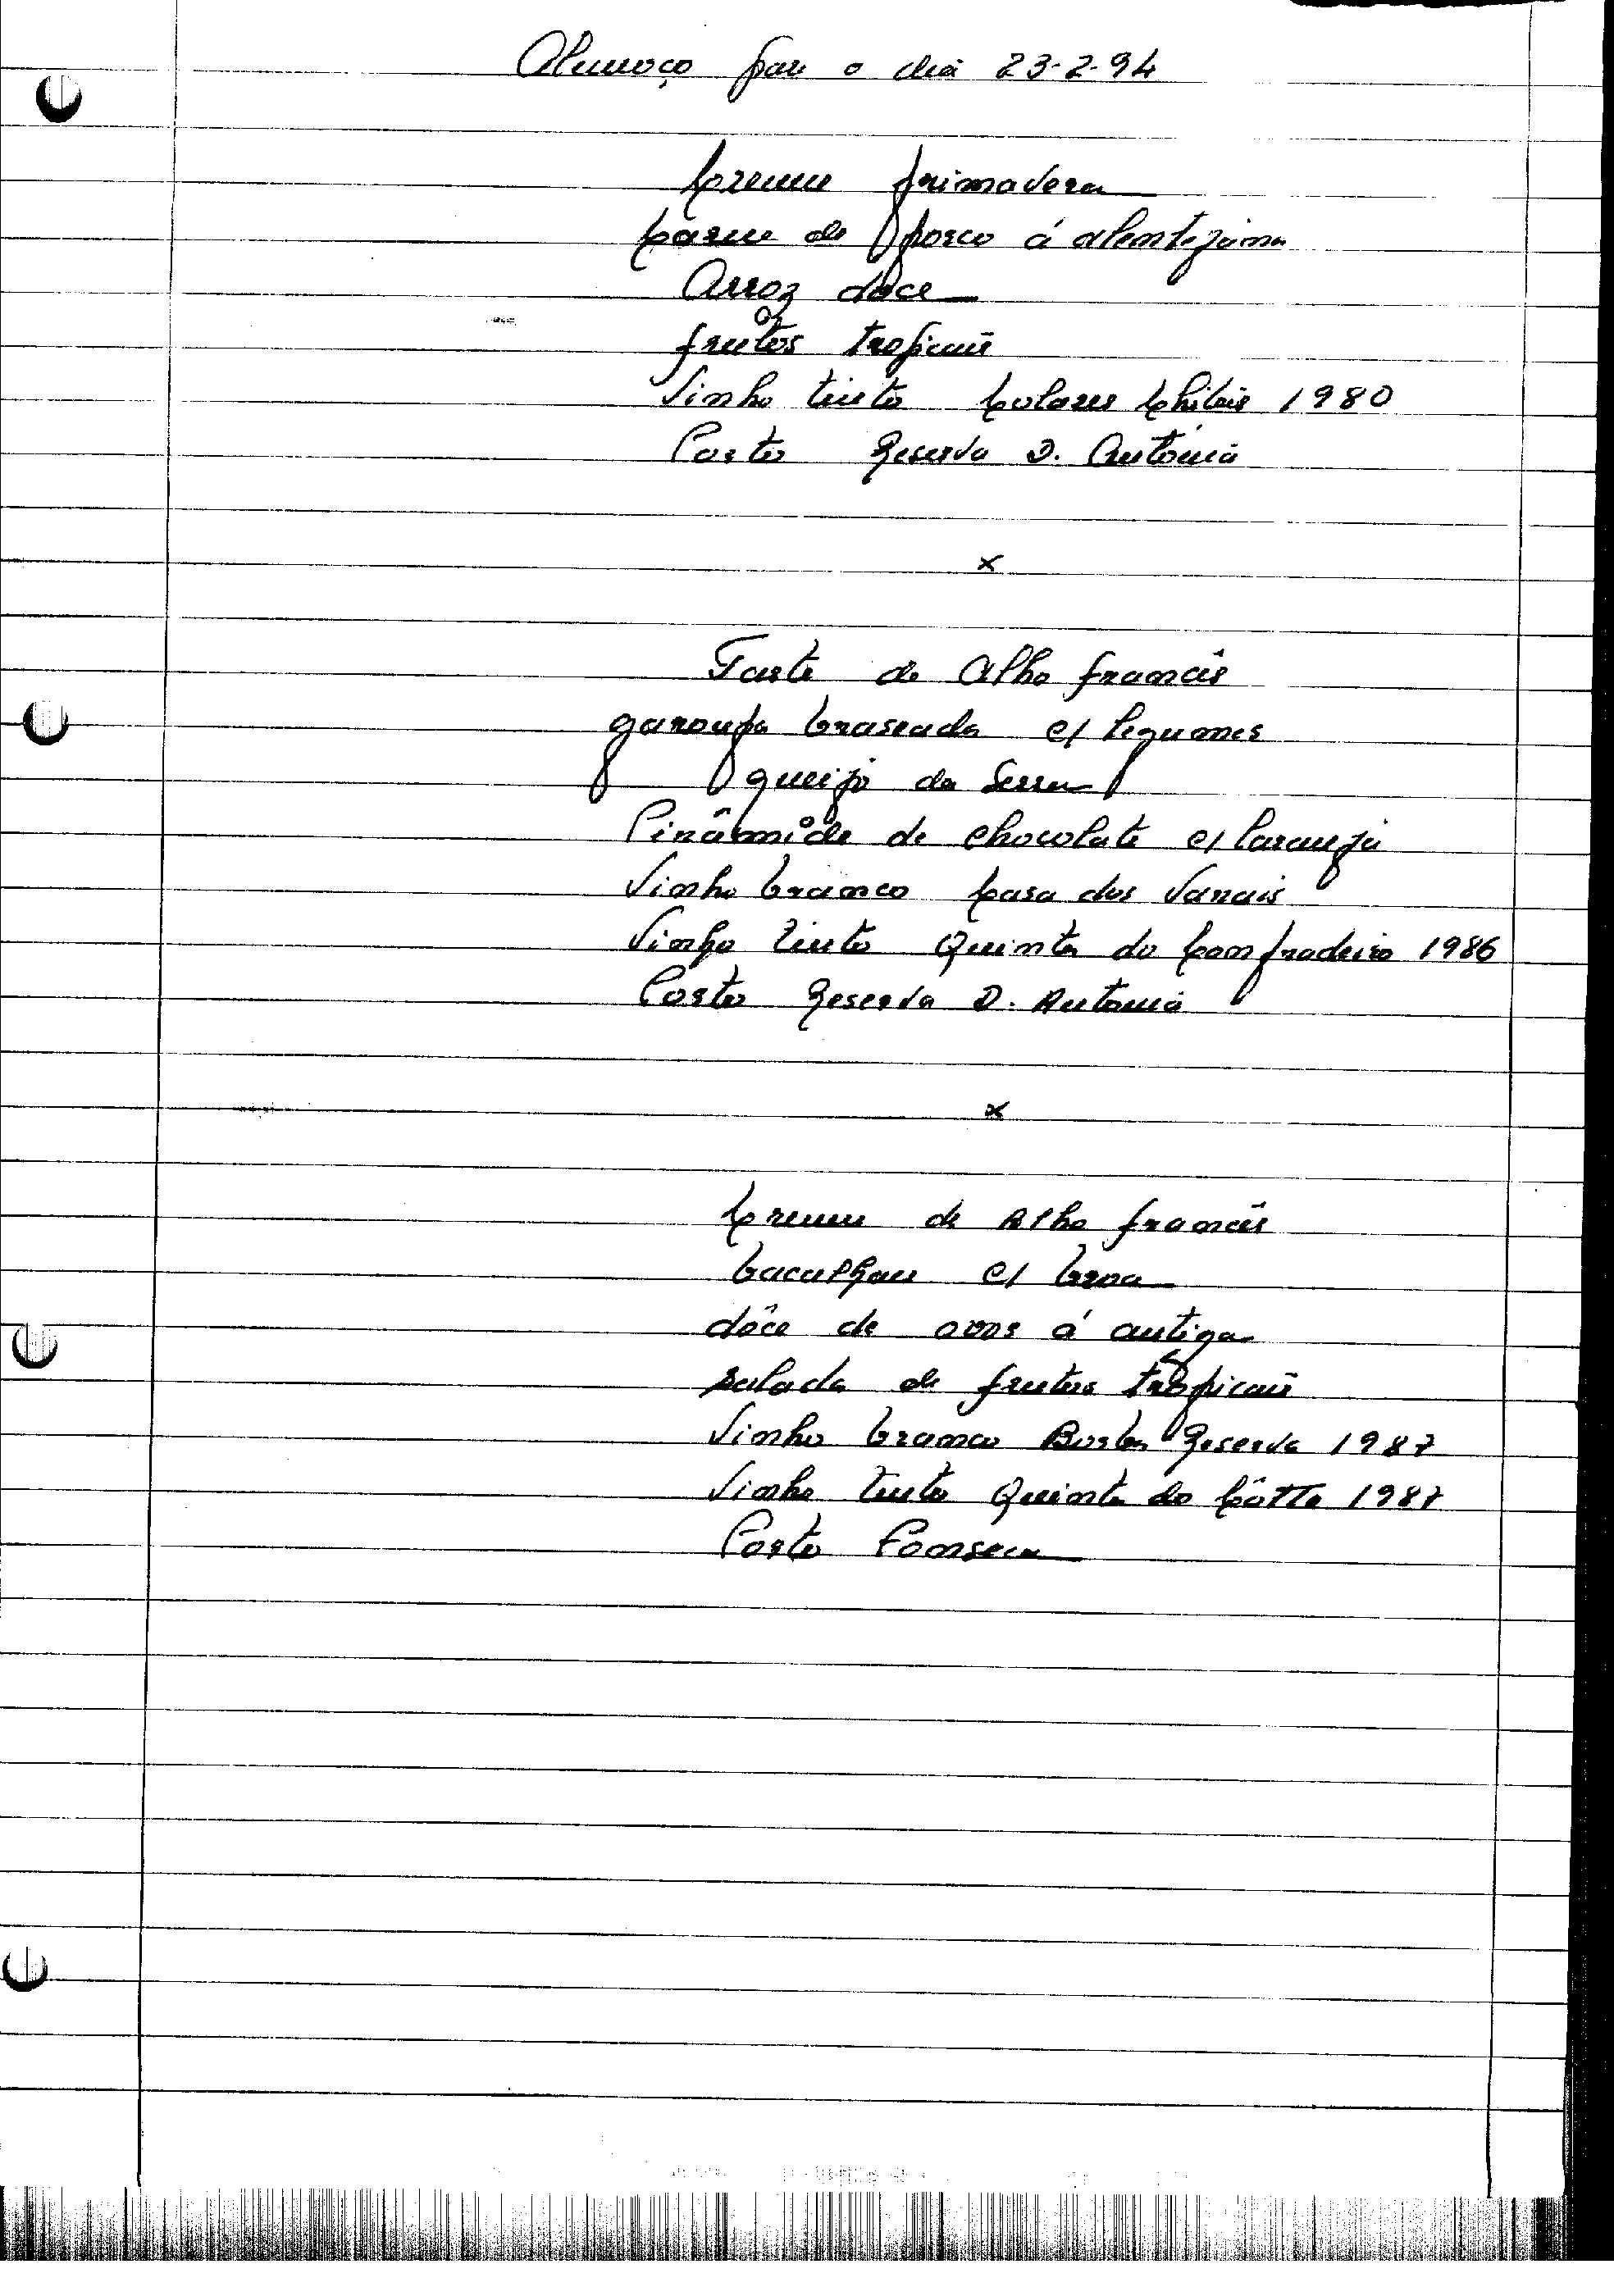 Almoço para o dia 23-2-94
Creme primavera
Carne de porco á alentejana
Arroz doce
frutos tropicais
Vinho tinto Colares Chitas 1980
Porto Reserva D. Antónia
x
Tarte de Alho francês
garoupa braseada c/ legumes
queijo da Serra
Pirâmide de chocolate c/ laranja
Vinho branco Casa dos Vanais
Vinho tinto Quinta do Confradeiro 1986
Porto Reserva D. Antonia
x
Creme de Alho francês
bacalhau c/ broa
dôce de ovos á antiga
salada de frutos tropicais
Vinho branco Borba Reserva 1987
Vinho tinto Quinta do Côtto 1987
Porto Fonseca